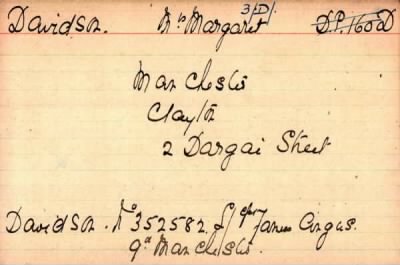 3/D/.
Davidson. Mrs Margaret D.P. 160D
Manchester
Clayton
2 Dargai Street
Davidson. No 352582. L/Cpl James Angus.
9th Manchester.